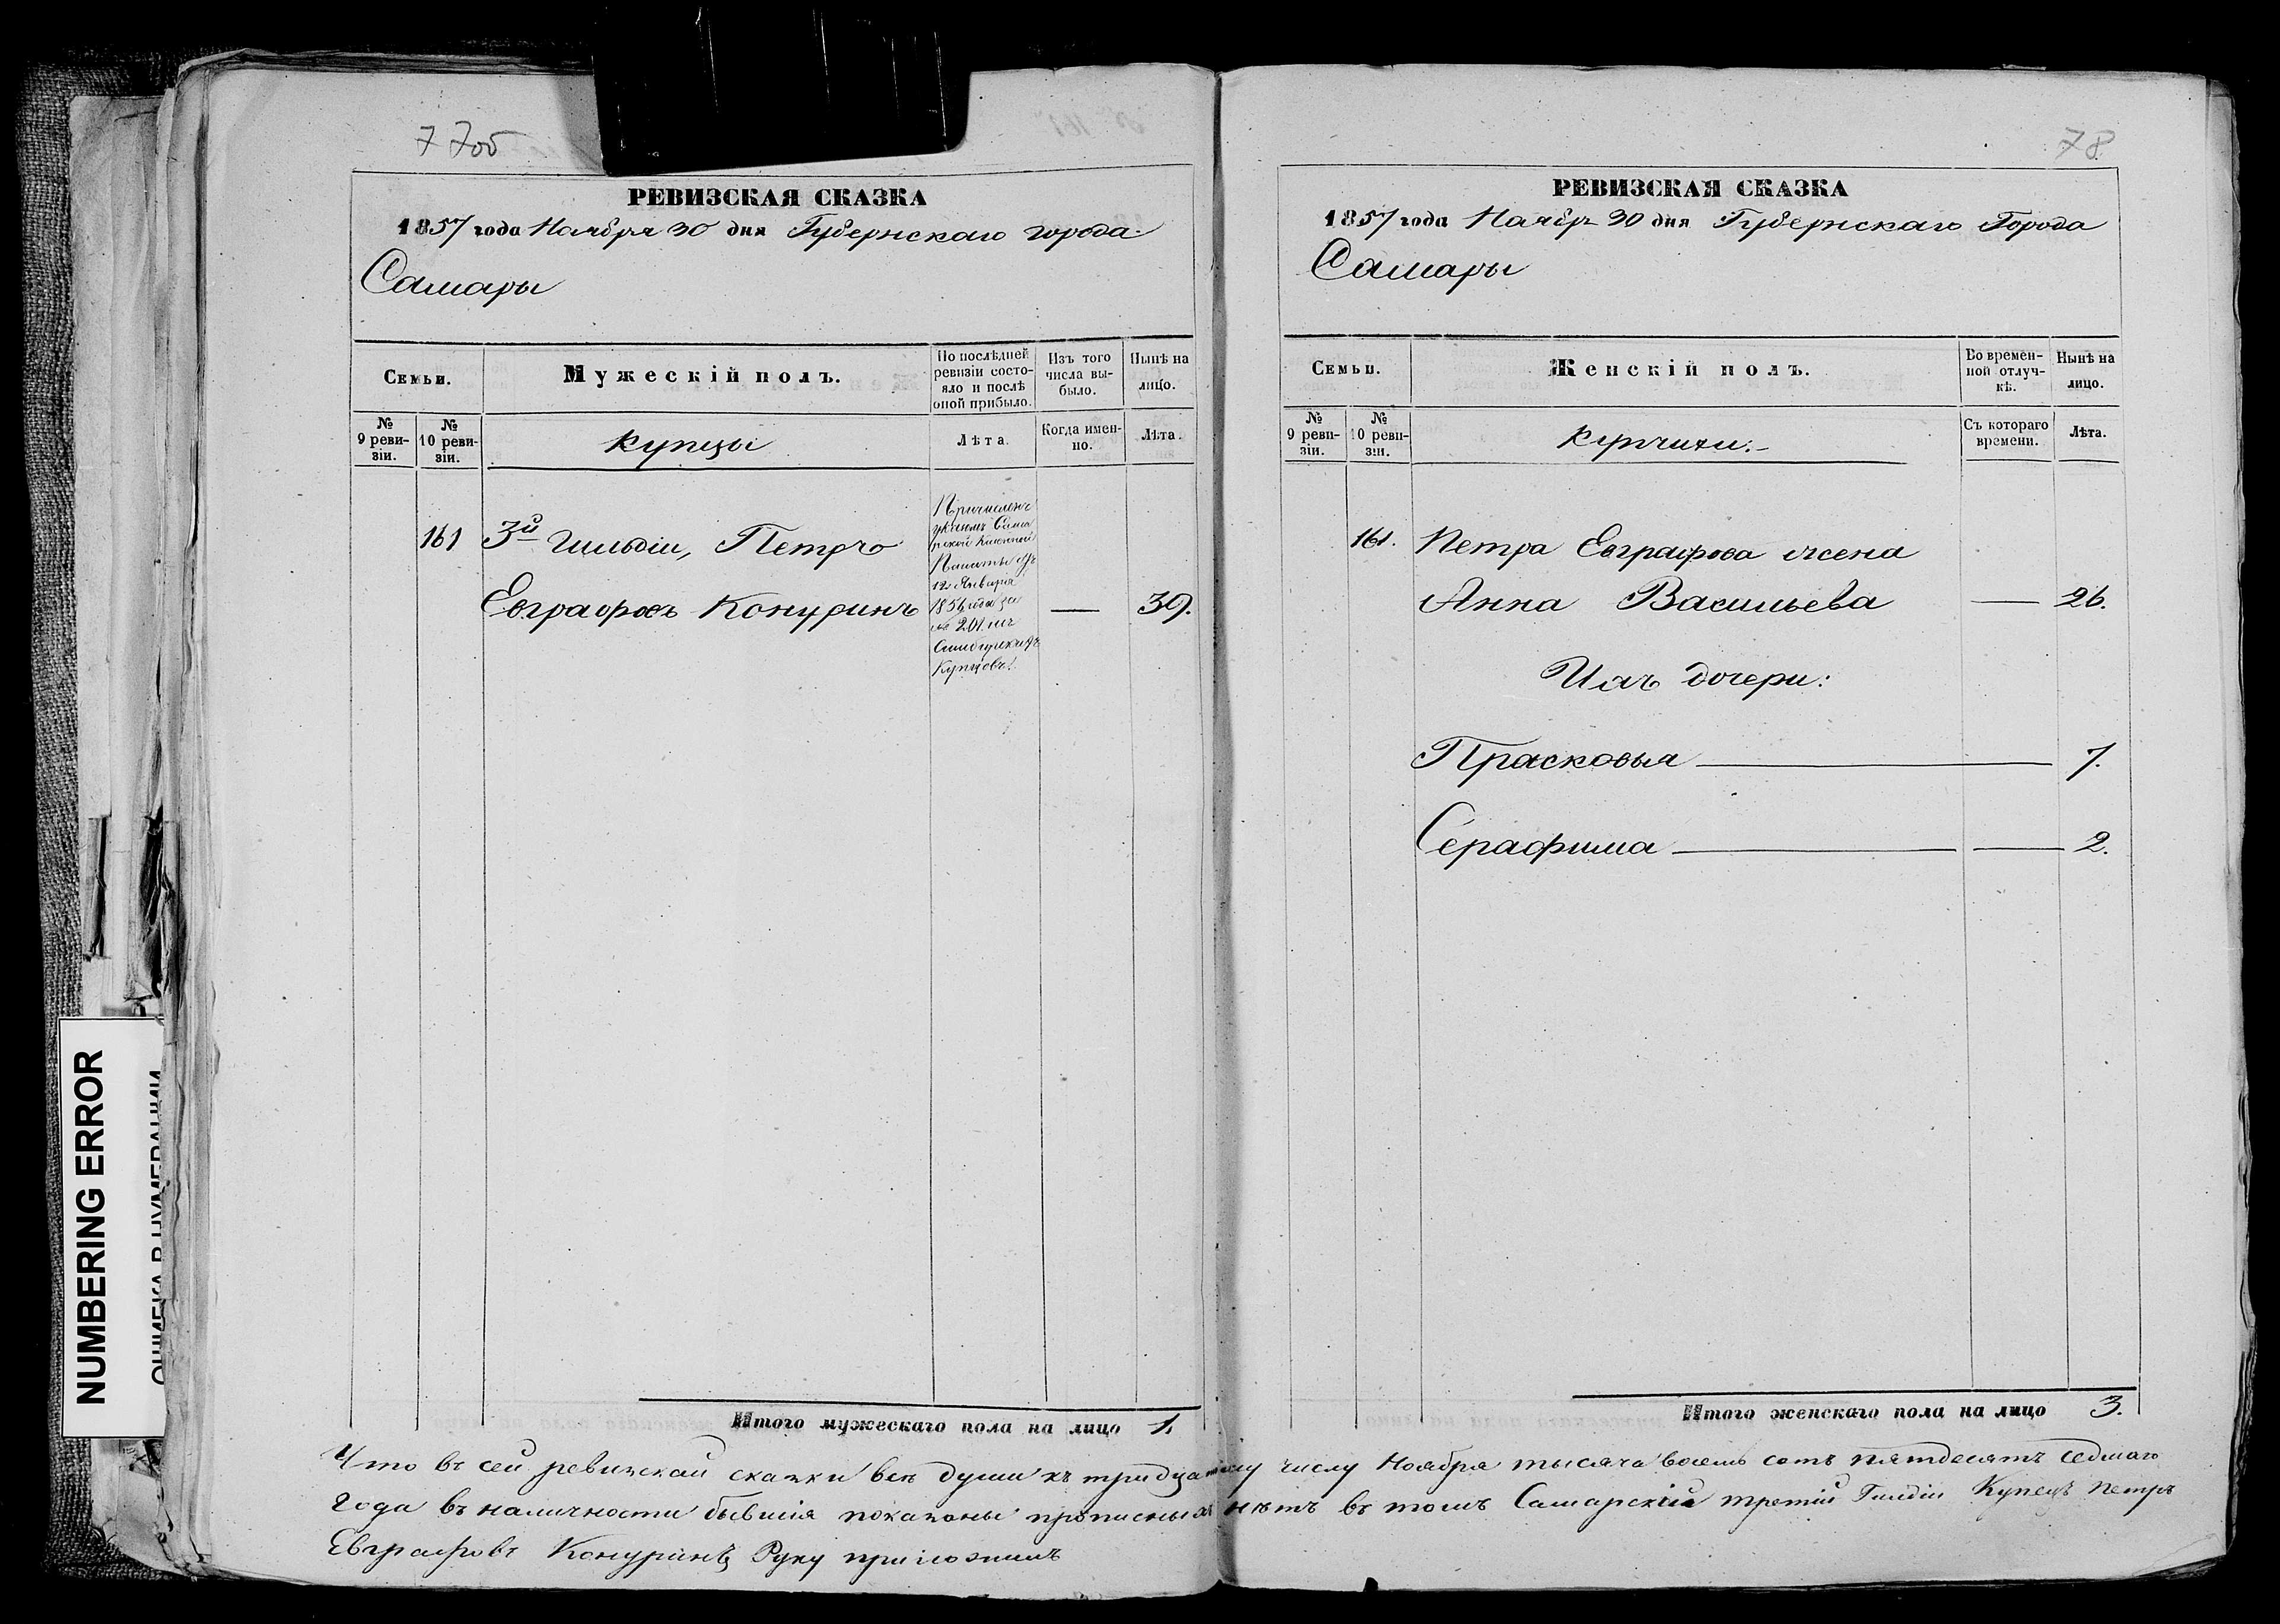 77об
РЕВИЗСКАЯ СКАЗКА
1857 года Ноября 30 дня Губернскаго города
Самары
Семьи.
Мужескій полъ.
По послѣдней ревизіи состояло и послѣ оной прибыло.
Изъ того числа выбыло.
Нынѣ на лицо.
№ 9 ревизіи.
№ 10 ревизіи.
Купцы
Лѣта.
Когда именно.
Лѣта.
161 3й Гильдіи, Петръ
Евграфовъ Конуринъ — 39.
Причисленъ
указомъ Сама
рской Казенной
Палаты отъ
12 Января
1856 года за
№ 201 изъ
Симбирскихъ
Купцовъ.
Итого мужескаго пола на лицо 1.
78
РЕВИЗСКАЯ СКАЗКА
1857 года Ноябр 30 дня Губернскаго Города
Самары
Семьи.
Женскій полъ.
Во временной отлучкѣ.
Нынѣ на лицо.
№ 9 ревизіи.
№ 10 ревизіи.
Купчихи:
Съ котораго времени.
Лѣта.
161. Петра Евграфова жена
Анна Васильева — 26.
Ихъ дочери:
Прасковья — 7.
Серафима — 2.
Итого женскаго пола на лицо 3.
Что въ сей ревизской сказки всѣ души къ тридцатому числу Ноября тысяча восемь сотъ пятдесятъ седмаго
Года въ наличности бывшія показаны прописныхъ нѣтъ въ томъ Самарскій третій Гилдіи Купецъ Петръ
Евграфовъ Конуринъ Руку приложилъ
NUMBERING ERROR
ОШИБКА В НУМЕРАЦИИ